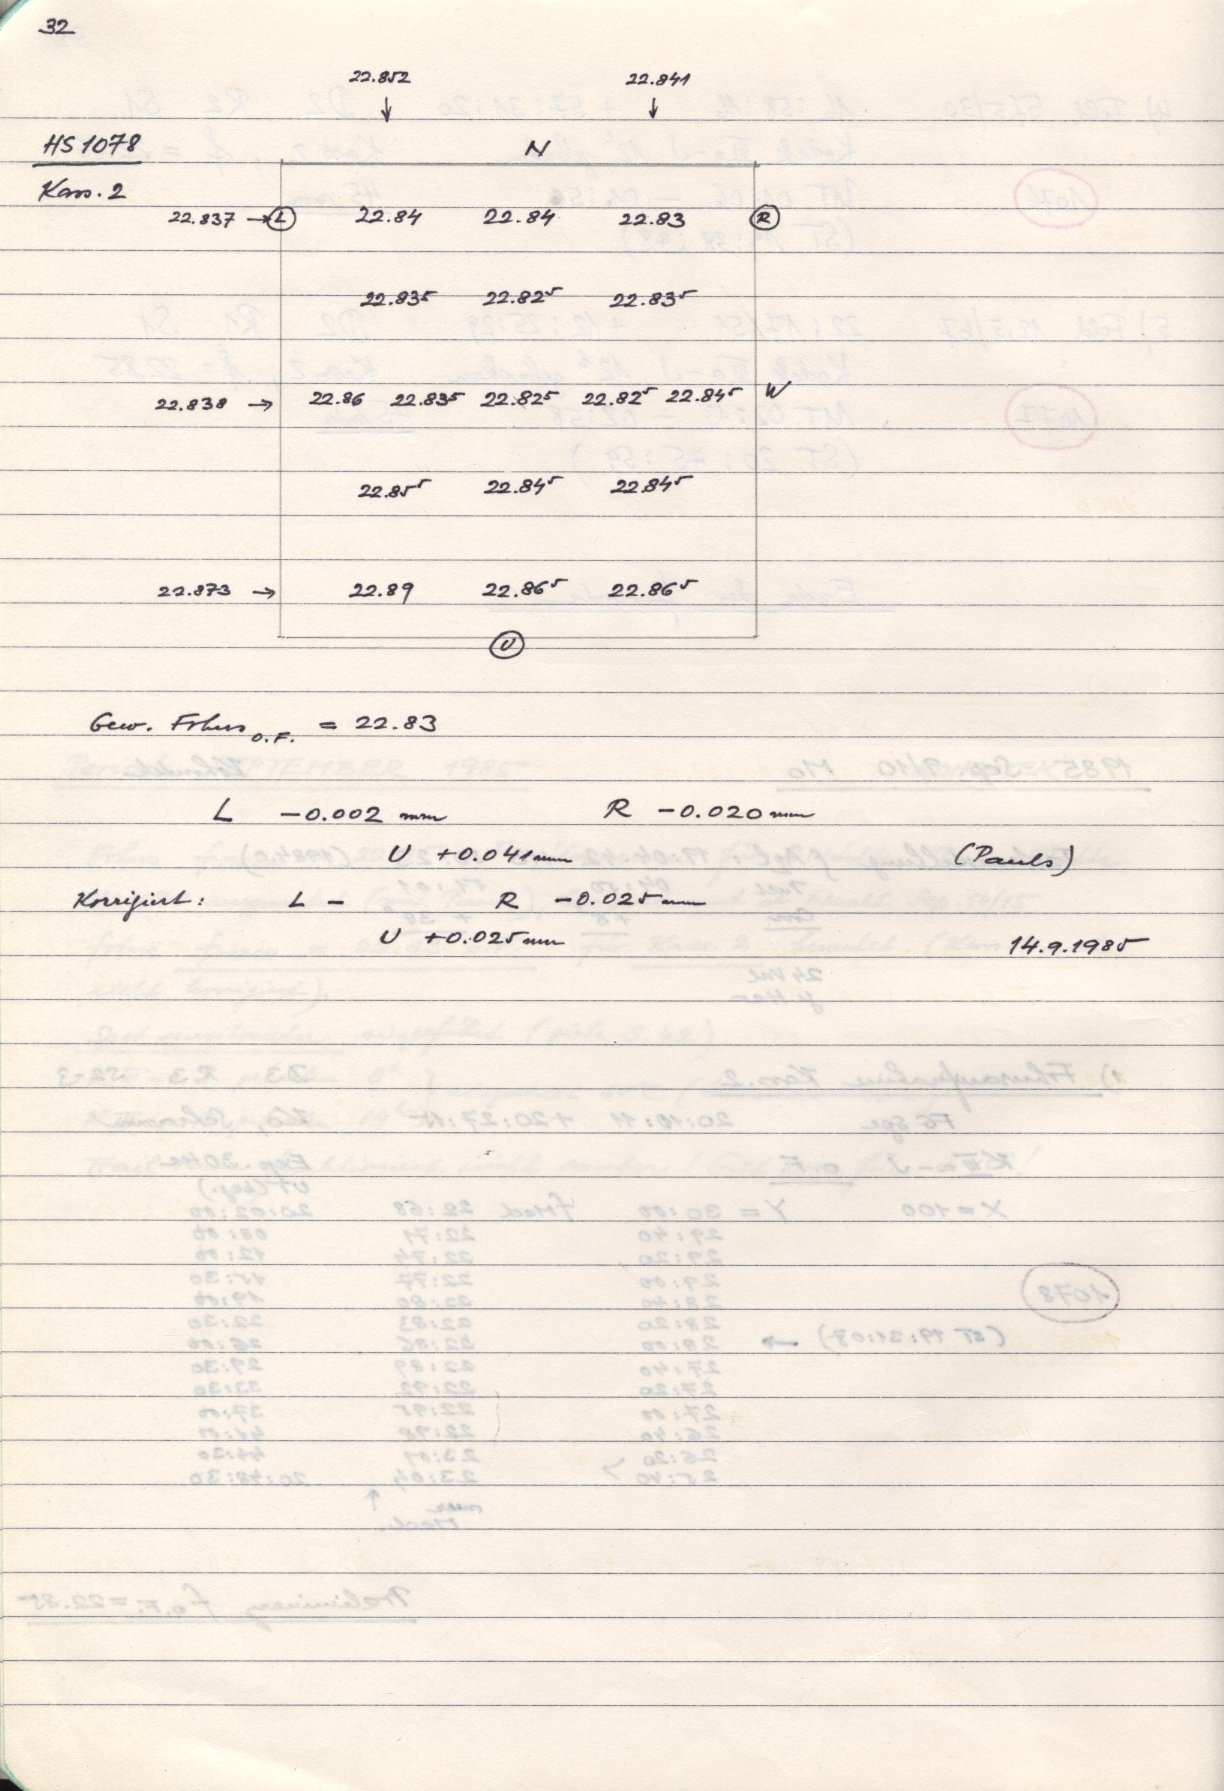 32
22.852 22.841
↓ ↓
HS 1078 N
Kass. 2
22.837 → L 22.84 22.84 22.83 R
22.83⁵ 22.82⁵ 22.83⁵
22.838 → 22.86 22.83⁵ 22.82⁵ 22.82⁵ 22.84⁵ W
22.85⁵ 22.84⁵ 22.84⁵
22.873 → 22.89 22.86⁵ 22.86⁵
U
Gew. Fokus O.F. = 22.83
L −0.002 mm R −0.020 mm
U +0.041 mm (Pauls)
Korrigiert: L − R −0.025 mm
U +0.025 mm 14.9.1985